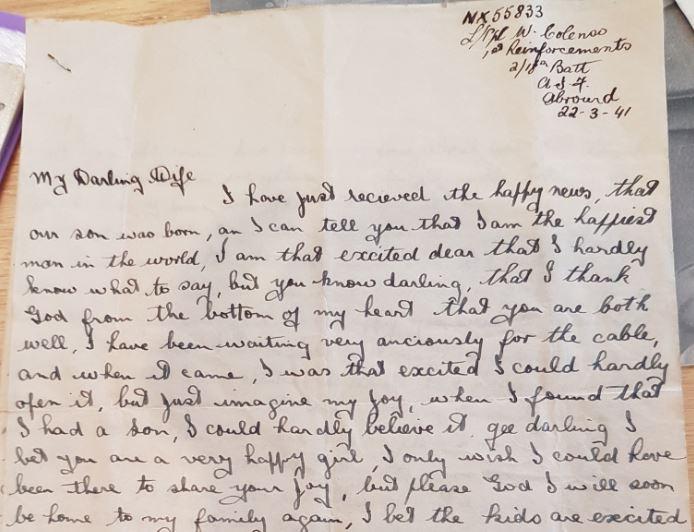 NX55833
L/Cpl W. Colenso
1st Reinforcements
2/18th Batt
A.I.F.
Abroard
22-3-41
My Darling Wife
I have just recieved the happy news, that
our son was born, an I can tell you that I am the happiest
man in the world, I am that excited dear that I hardly
know what to say, but you know darling, that I thank
God from the bottom of my heart that you are both
well, I have been waiting very anciously for the cable,
and when it came, I was that excited I could hardly
open it, but just imagine my joy, when I found that
I had a son, I could hardly believe it, gee darling I
bet you are a very happy girl, I only wish I could have
been there to share your joy, but please God I will soon
be home to my family again, I bet the kids are excited